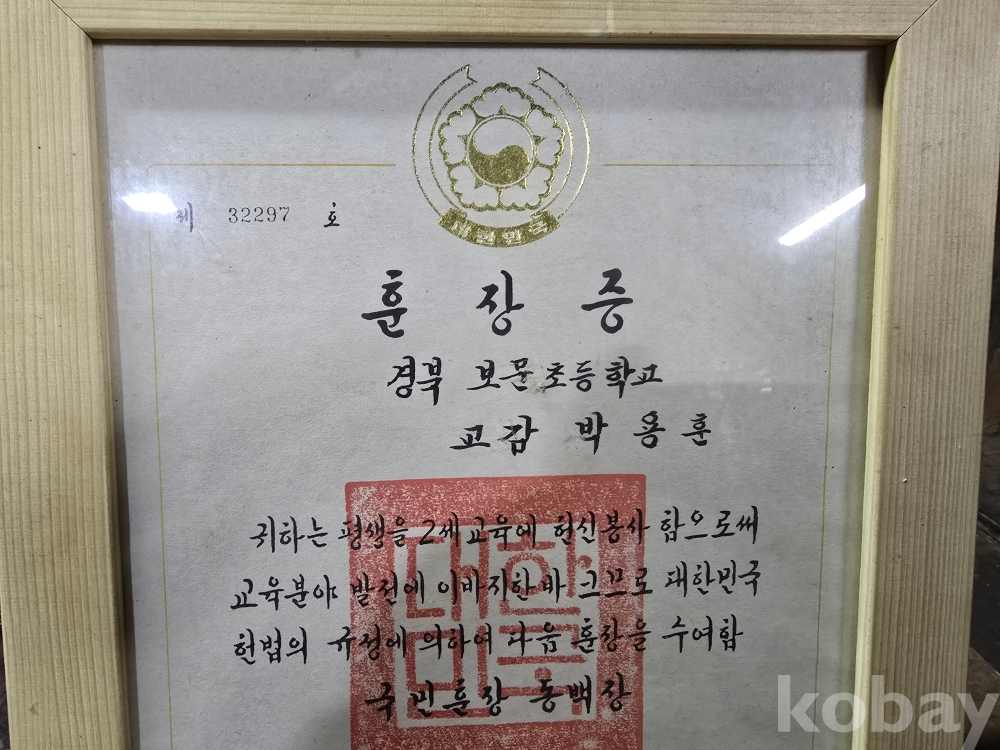 대한민국
제 32297 호
훈장증
경북 보문초등학교
교감 박용훈
귀하는 평생을 2세교육에 헌신봉사 함으로써
교육분야 발전에 이바지한바 크므로 대한민국
헌법의 규정에 의하여 다음 훈장을 수여함
국민훈장 동백장
대한
민국
kobay